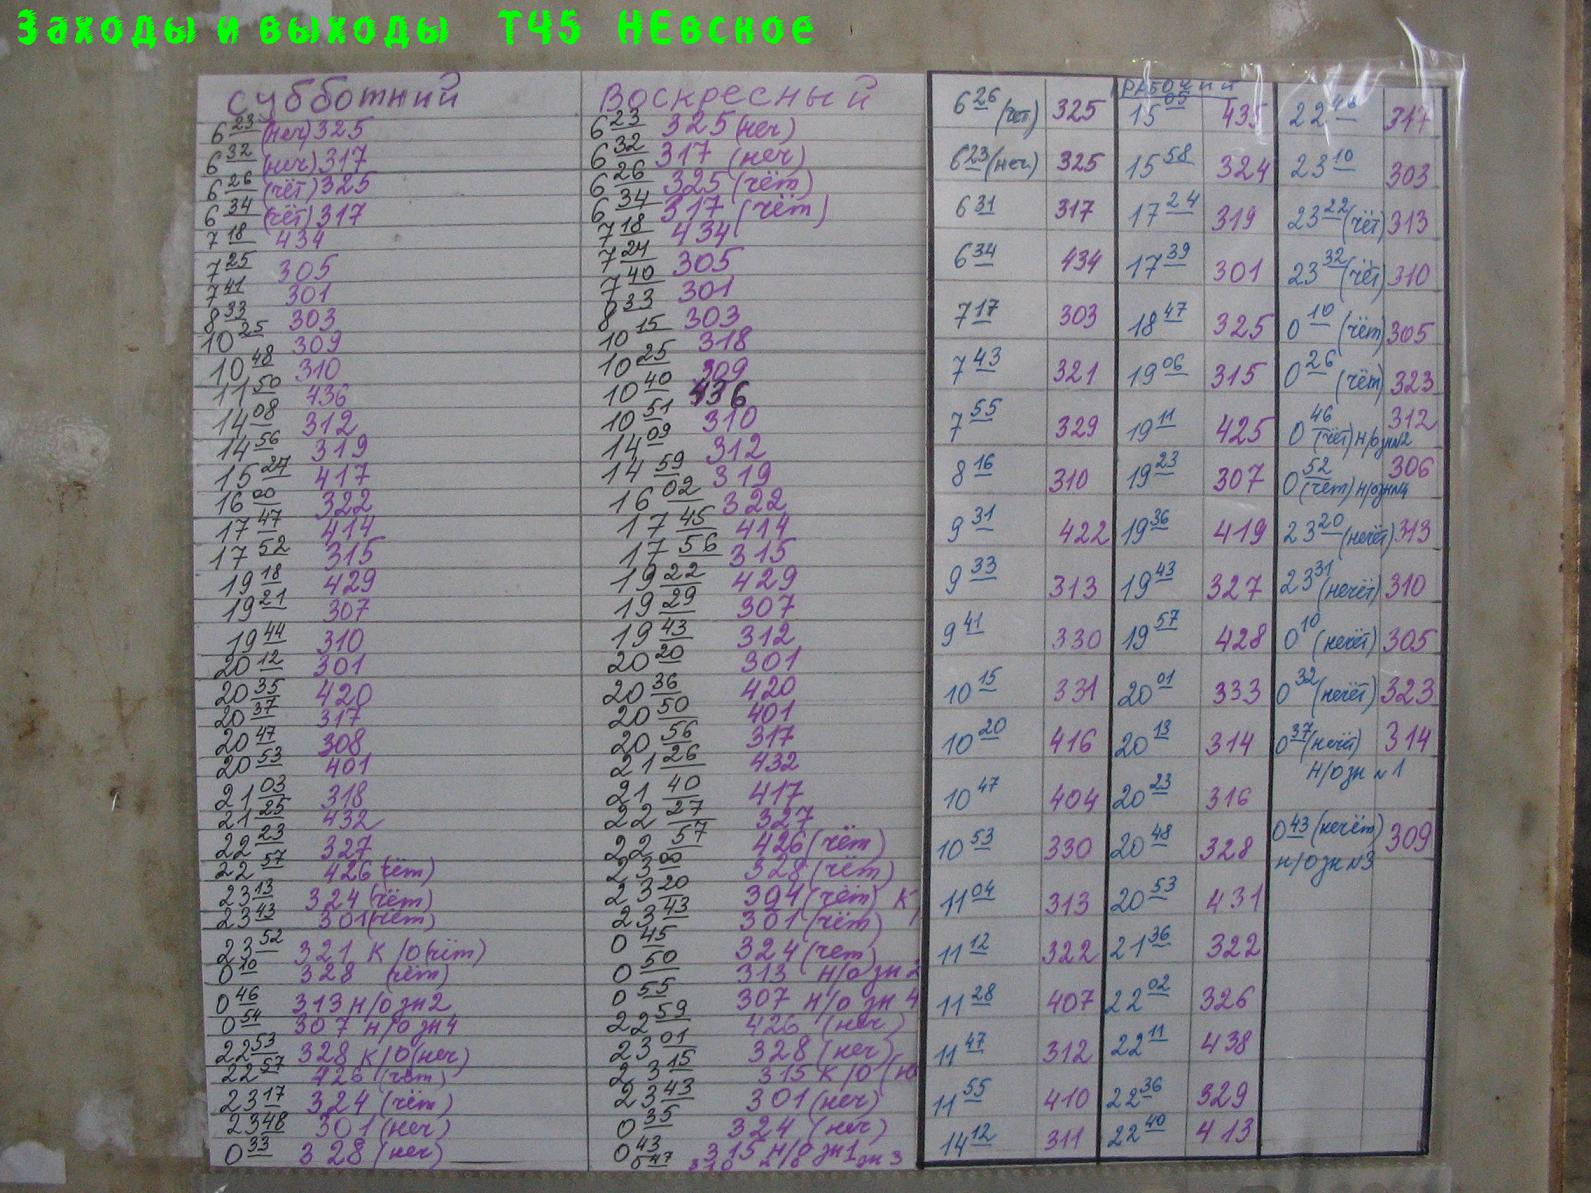 Заходы и выходы Т45 НЕвсное
Субботний
6 23 (неч) 325
6 32 (неч) 317
6 26 (чёт) 325
6 34 (чёт) 317
7 18 434
7 25 305
7 41 301
8 33 303
10 25 309
10 48 310
11 50 436
14 08 312
14 56 319
15 27 417
16 00 322
17 47 414
17 52 315
19 18 429
19 21 307
19 44 310
20 12 301
20 35 420
20 37 317
20 47 308
20 53 401
21 03 318
21 25 432
22 23 327
22 57 426 (чёт)
23 13 324 (чёт)
23 43 301 (чёт)
23 52 321 К/О (чёт)
0 10 328 (чёт)
0 46 313 н/о зн 2
0 54 307 н/о зн 4
22 53 328 К/О (неч)
22 57 426 (чёт)
23 17 324 (чёт)
23 48 301 (неч)
0 33 328 (неч)
Воскресный
6 23 325 (неч)
6 32 317 (неч)
6 26 325 (чёт)
6 34 317 (чёт)
7 18 434
7 24 305
7 40 301
8 33 303
10 15 318
10 25 309
10 40 436
10 51 310
14 09 312
14 59 319
16 02 322
17 45 414
17 56 315
19 22 429
19 29 307
19 43 312
20 20 301
20 36 420
20 50 401
20 56 317
21 26 432
21 40 417
22 27 327
22 57 426 (чёт)
23 00 328 (чёт)
23 20 304 (чёт) К
23 43 301 (чёт)
0 45 324 (чет)
0 50 313 н/о зн 2
0 55 307 н/о зн 4
22 59 426 (неч)
23 01 328 (неч)
23 15 315 К/О (н
23 43 301 (неч)
0 35 324 (неч)
0 43 315 н/о зн 1
0 47 310 н/о зн 3
Рабочий
6 26 (чёт) 325
6 23 (неч) 325
6 31 317
6 34 434
7 17 303
7 43 321
7 55 329
8 16 310
9 31 422
9 33 313
9 41 330
10 15 331
10 20 416
10 47 404
10 53 330
11 04 313
11 12 322
11 28 407
11 47 312
11 55 410
14 12 311
15 05 435
15 58 324
17 24 319
17 39 301
18 47 325
19 06 315
19 11 425
19 23 307
19 36 419
19 43 327
19 57 428
20 01 333
20 13 314
20 23 316
20 48 328
20 53 431
21 36 322
22 02 326
22 11 438
22 36 329
22 40 413
22 46 317
23 10 303
23 22 (чёт) 313
23 32 (чёт) 310
0 10 (чёт) 305
0 26 (чёт) 323
0 46 (чёт) н/о зн 2 312
0 52 (чёт) н/о зн 4 306
23 20 (нечёт) 313
23 31 (нечёт) 310
0 10 (нечёт) 305
0 32 (нечёт) 323
0 37 (нечёт) 314
н/о зн №1
0 43 (нечёт) 309
н/о зн №3